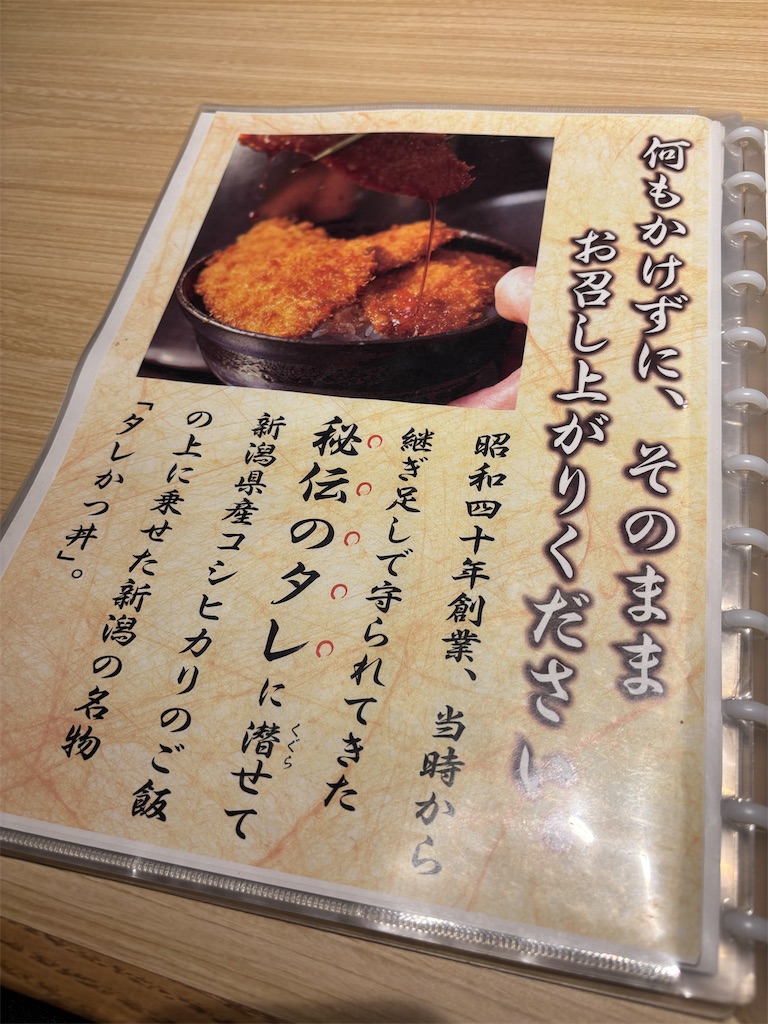 何もかけずに、そのまま
お召し上がりください。
昭和四十年創業、当時から
継ぎ足しで守られてきた
秘伝のタレに潜せて
くぐら
新潟県産コシヒカリのご飯
の上に乗せた新潟の名物
「タレかつ丼」。